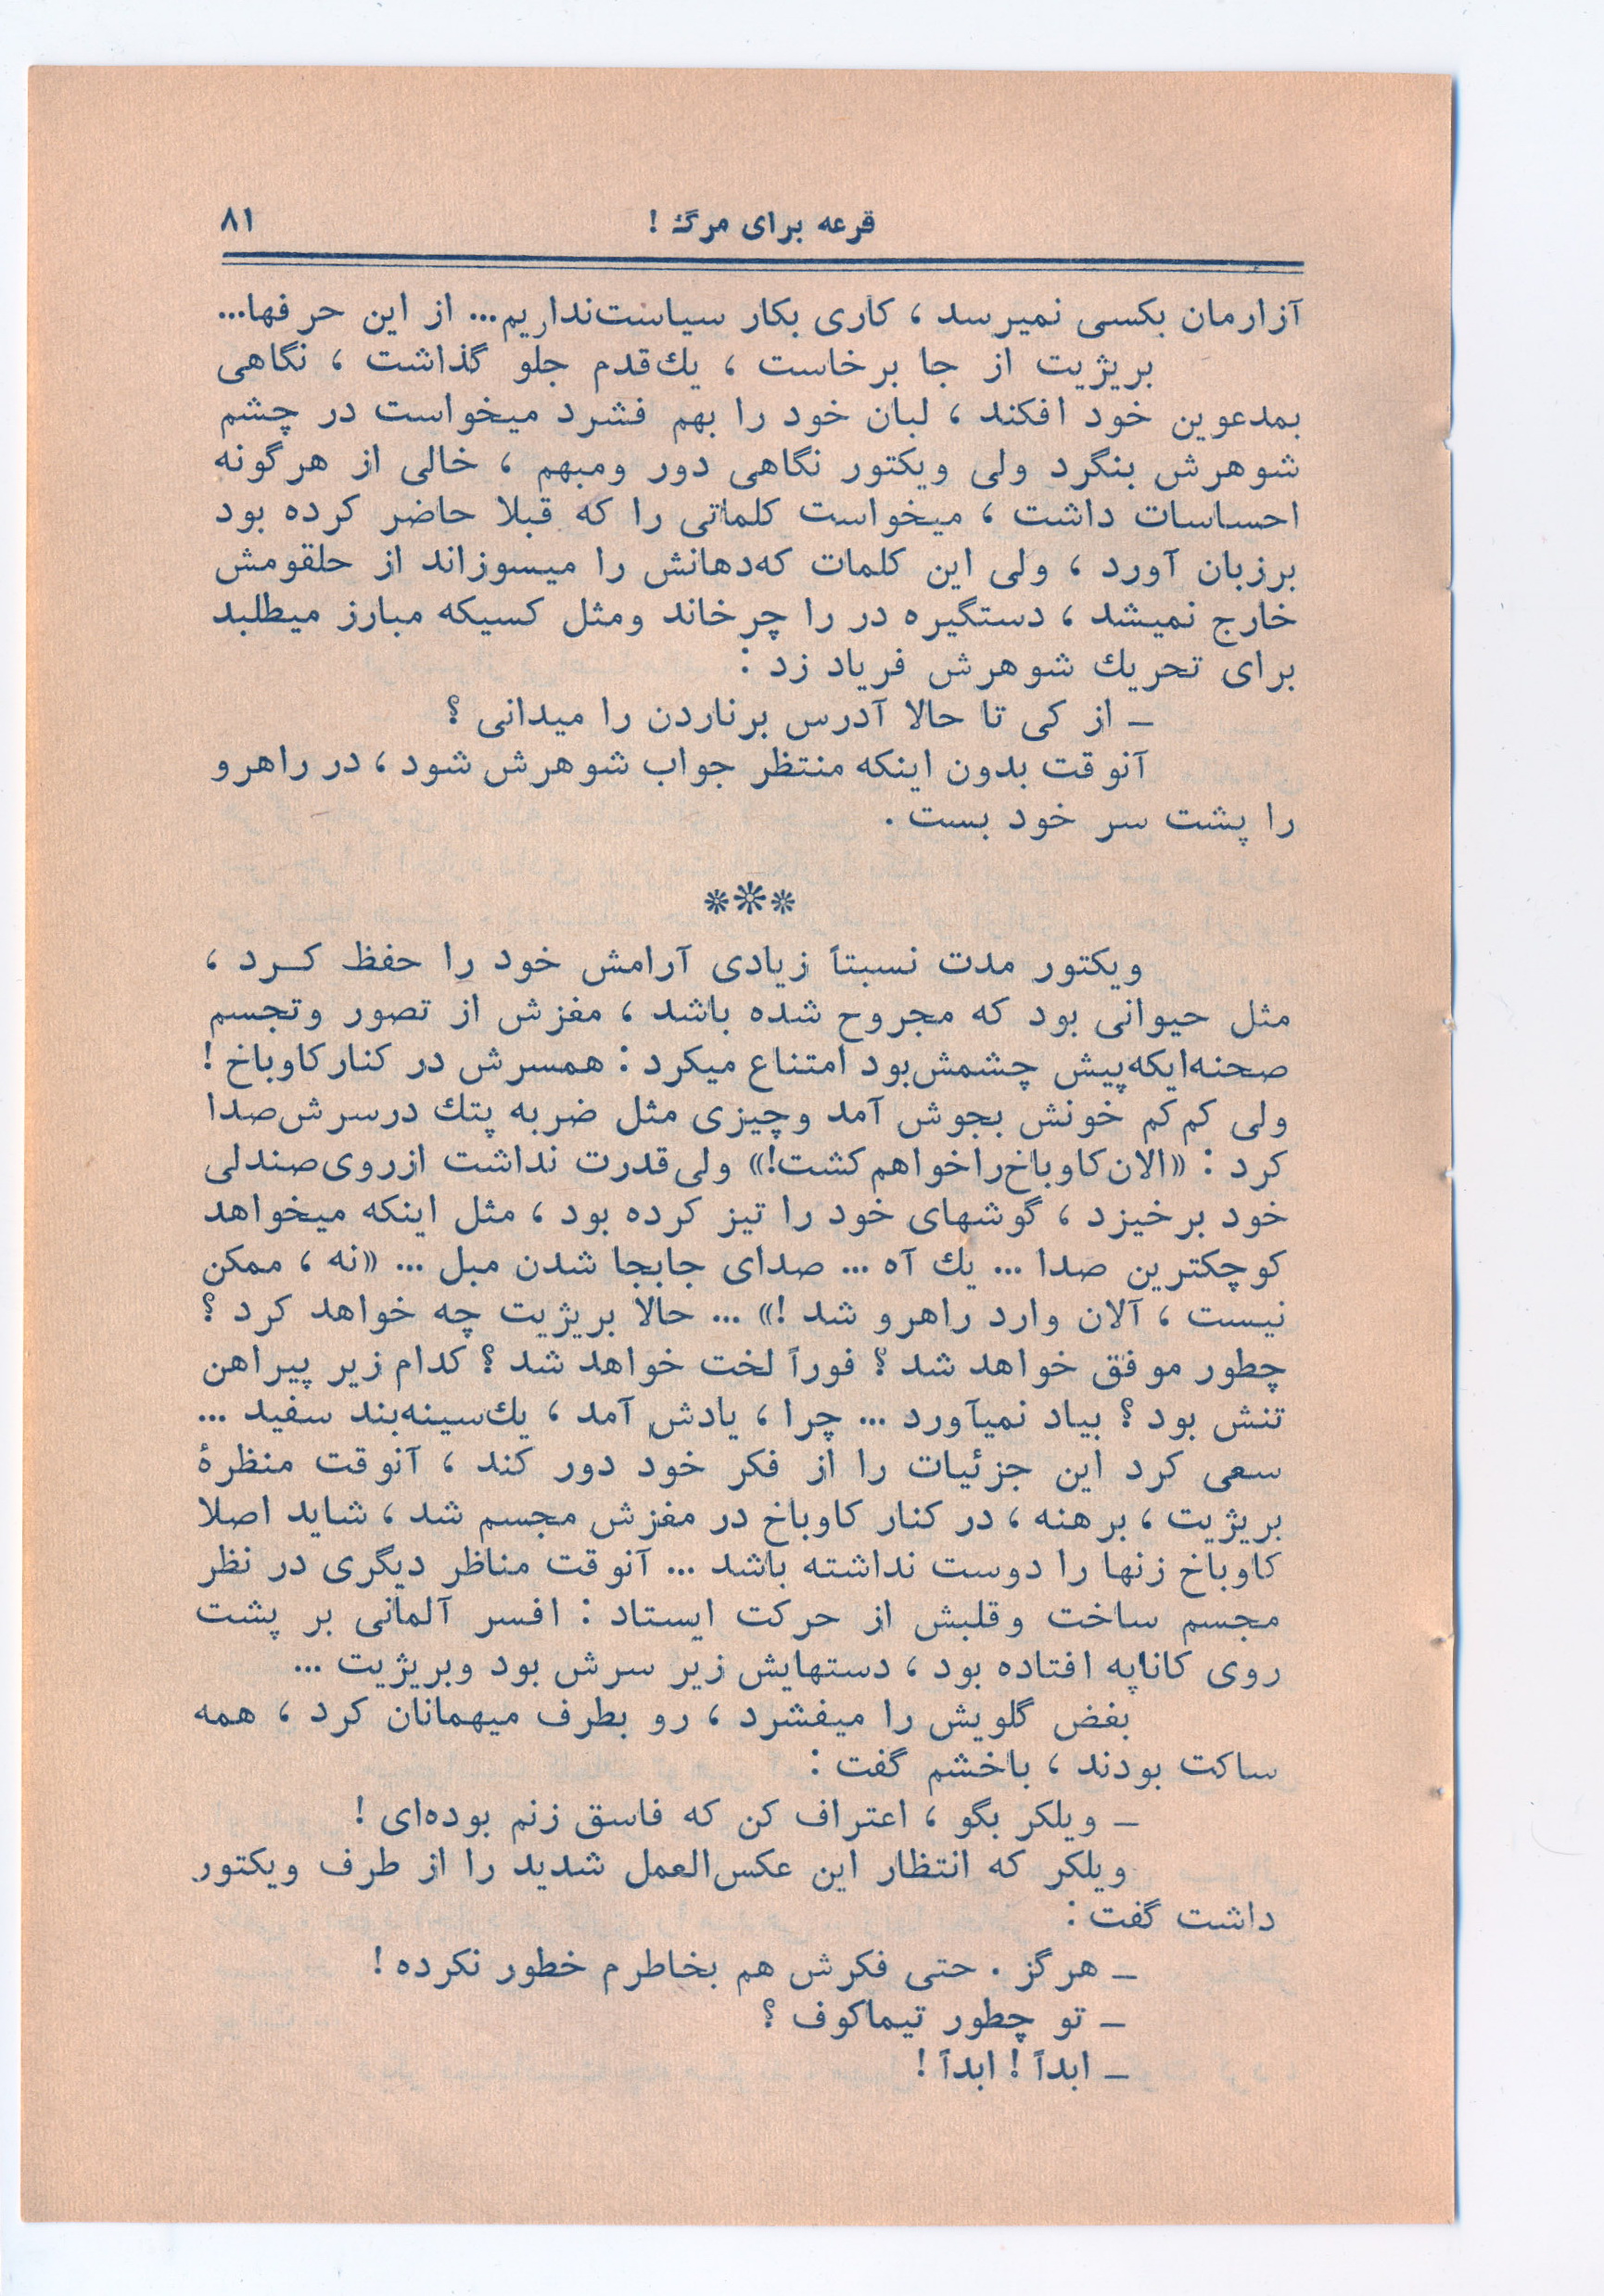 قرعه برای مرگ ! ۸۱
آزارمان بکسی نمیرسد ، کاری بکار سیاست‌نداریم... از این حرفها...
بریژیت از جا برخاست ، یك‌قدم جلو گذاشت ، نگاهی
بمدعوین خود افکند ، لبان خود را بهم فشرد میخواست در چشم
شوهرش بنگرد ولی ویکتور نگاهی دور ومبهم ، خالی از هرگونه
احساسات داشت ، میخواست کلماتی را که قبلا حاضر کرده بود
برزبان آورد ، ولی این کلمات که‌دهانش را میسوزاند از حلقومش
خارج نمیشد ، دستگیره در را چرخاند ومثل کسیکه مبارز میطلبد
برای تحریك شوهرش فریاد زد :
ـ از کی تا حالا آدرس برناردن را میدانی ؟
آنوقت بدون اینکه منتظر جواب شوهرش شود ، در راهرو
را پشت سر خود بست .
***
ویکتور مدت نسبتاً زیادی آرامش خود را حفظ کـرد ،
مثل حیوانی بود که مجروح شده باشد ، مغزش از تصور وتجسم
صحنه‌ایکه‌پیش چشمش‌بود امتناع میکرد : همسرش در کنارکاوباخ !
ولی کم‌کم خونش بجوش آمد وچیزی مثل ضربه پتك درسرش‌صدا
کرد : «الان‌کاوباخ‌راخواهم‌کشت!» ولی‌قدرت نداشت ازروی‌صندلی
خود برخیزد ، گوشهای خود را تیز کرده بود ، مثل اینکه میخواهد
کوچکترین صدا ... یك آه ... صدای جابجا شدن مبل ... «نه ، ممکن
نیست ، آلان وارد راهرو شد !» ... حالا بریژیت چه خواهد کرد ؟
چطور موفق خواهد شد ؟ فوراً لخت خواهد شد ؟ کدام زیر پیراهن
تنش بود ؟ بیاد نمیآورد ... چرا ، یادش آمد ، یك‌سینه‌بند سفید ...
سعی کرد این جزئیات را از فکر خود دور کند ، آنوقت منظرهٔ
بریژیت ، برهنه ، در کنار کاوباخ در مغزش مجسم شد ، شاید اصلا
کاوباخ زنها را دوست نداشته باشد ... آنوقت مناظر دیگری در نظر
مجسم ساخت وقلبش از حرکت ایستاد : افسر آلمانی بر پشت
روی کاناپه افتاده بود ، دستهایش زیر سرش بود وبریژیت ...
بغض گلویش را میفشرد ، رو بطرف میهمانان کرد ، همه
ساکت بودند ، باخشم گفت :
ـ ویلکر بگو ، اعتراف کن که فاسق زنم بوده‌ای !
ویلکر که انتظار این عکس‌العمل شدید را از طرف ویکتور
داشت گفت :
ـ هرگز . حتی فکرش هم بخاطرم خطور نکرده !
ـ تو چطور تیماکوف ؟
ـ ابداً ! ابداً !